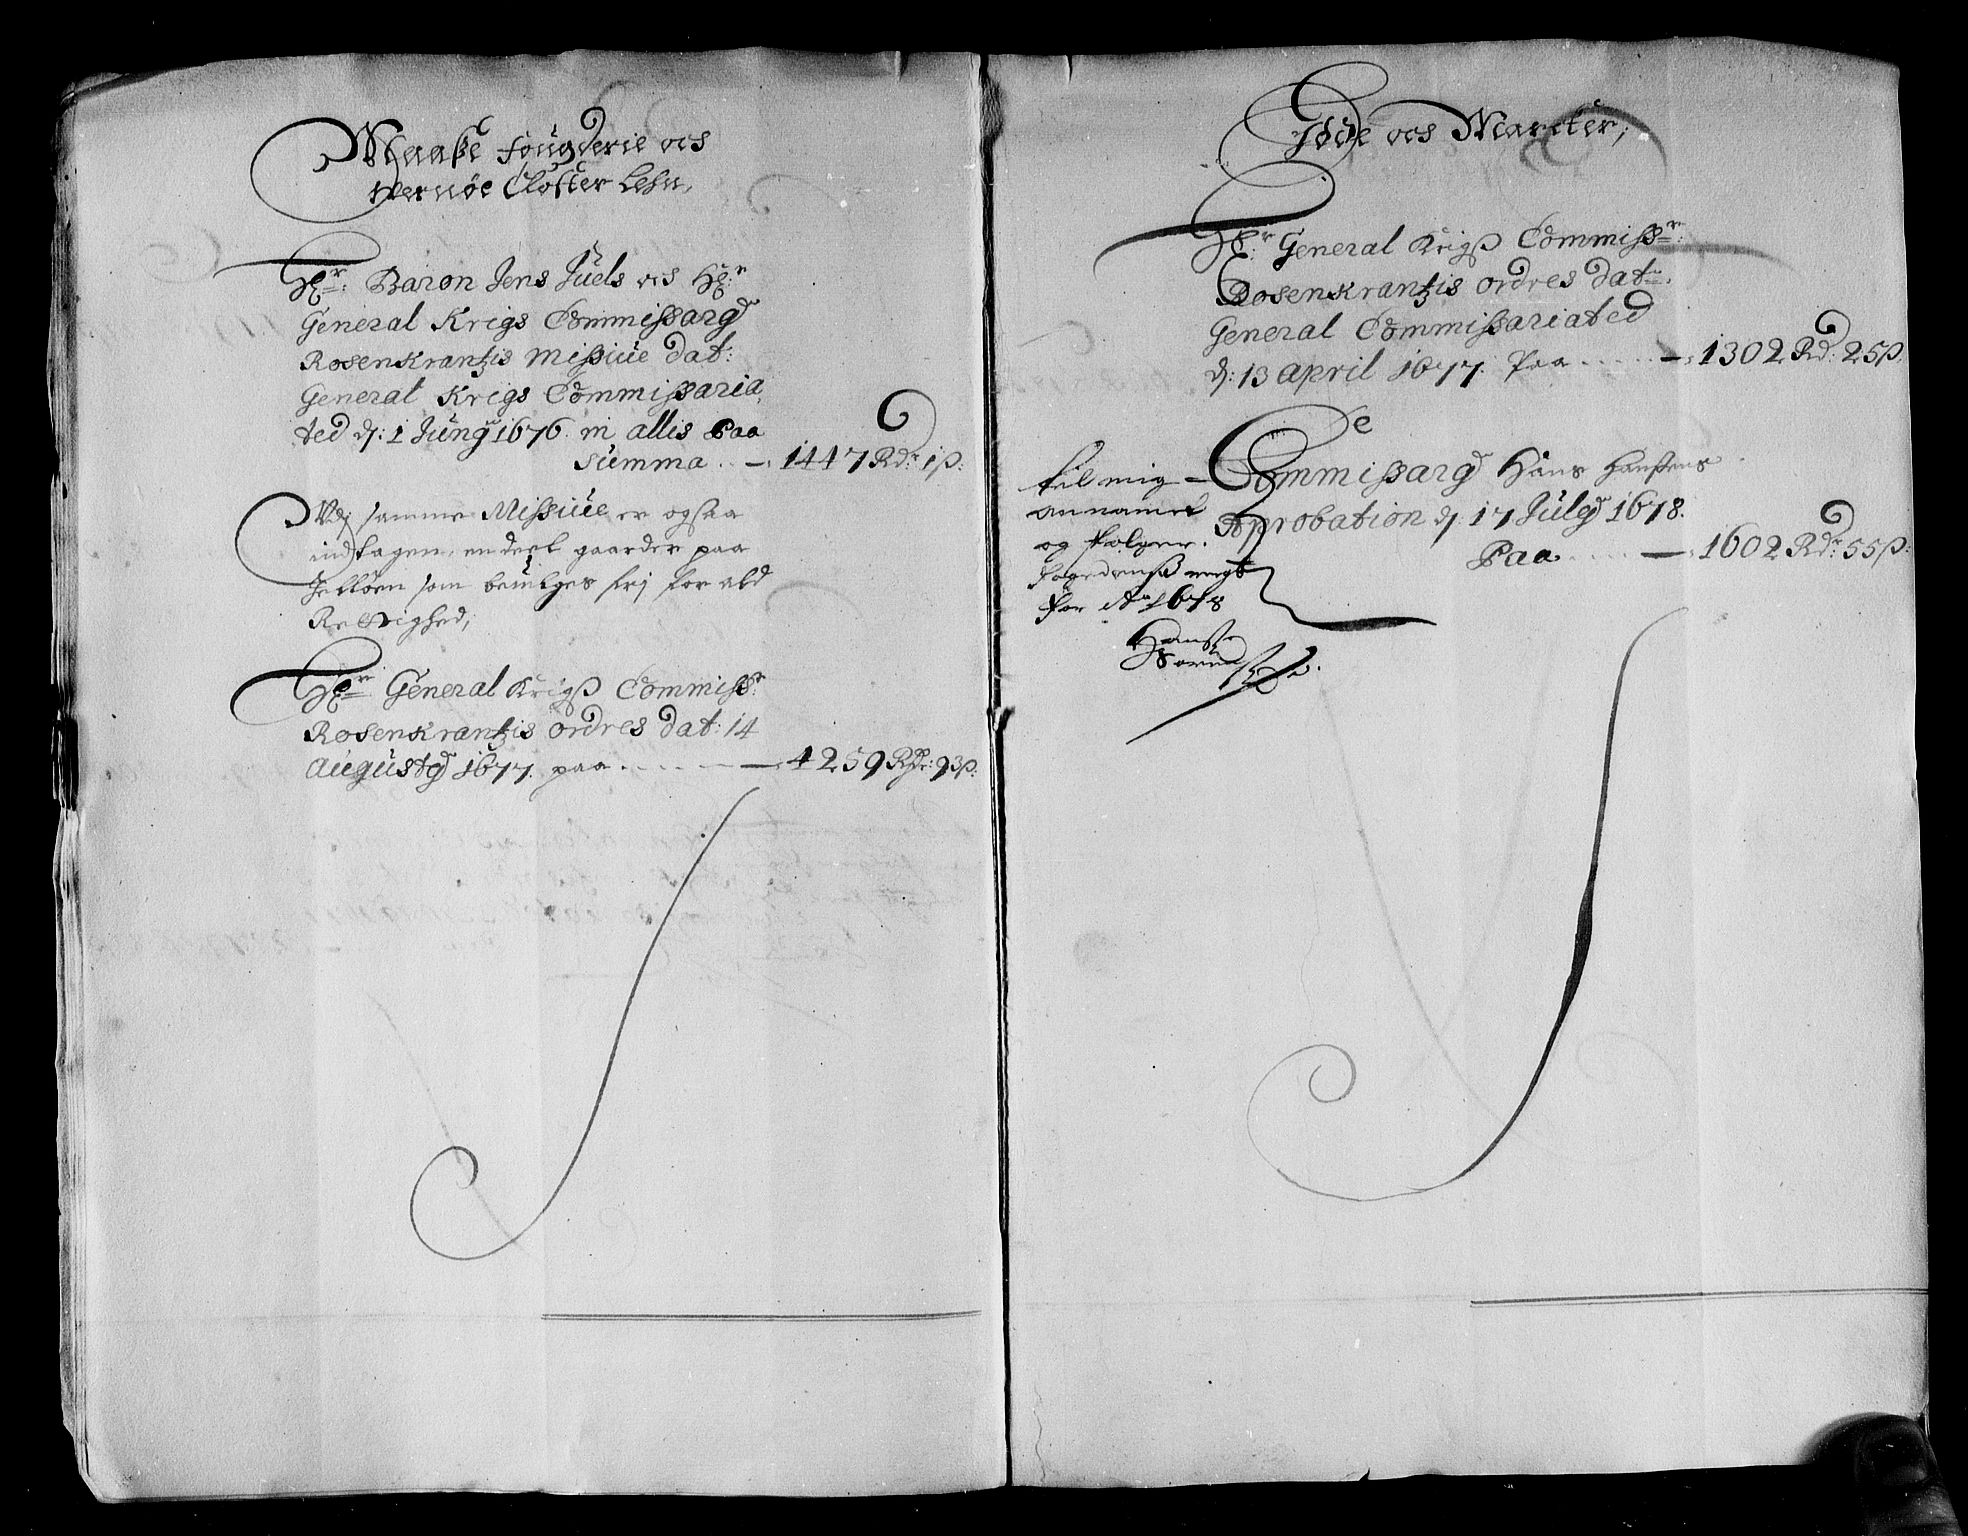 Maaße fougderie och
Wernöe Closter Lehn,
HE:r: Baron Jens Juels och HE:r
General Krigs Commissarÿ
Rosenkrantzis Missive dat:
General Krigs Commissaria,
ted d: 1 Junÿ 1676. in allis Paa
Summa .. — 1447 Rdr 1ß:
Vdj samme Missive er ogsaa
indtagen, en deel gaarder paa
Jelløen som bevilges frj for ald
Rettighed;
HEr General Krigß Commissr:
Rosenkrantzis ordres dat: 14
Augustÿ 1677. paa ..... — 4259 Rdr: 93ß:
Idde och Marcker;
HE:r General Krigß Commissr:
Rosenkrantzis ordres dat:
General Commissariated
d: 13 april 1677. Paa ..... — 1302 Rd: 25ß.
Commissarÿ Hans Hanßens
Aprobation d: 17 Julÿ 1678.
Paa .... — 1602 Rdr: 55ß:
til mig
annamet
og følger
for Ao 1678
Hanß
Sørenß